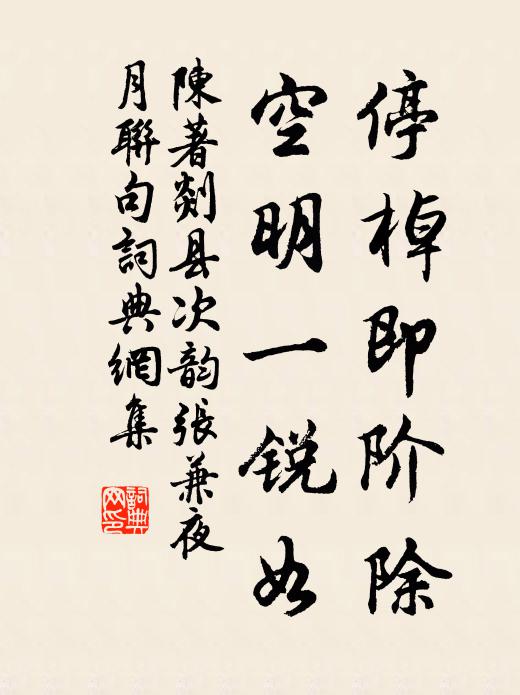 停棹即阶除
空明一锐如
陳著剡县次韵張兼夜
月聯句詞典網集
詞典網印